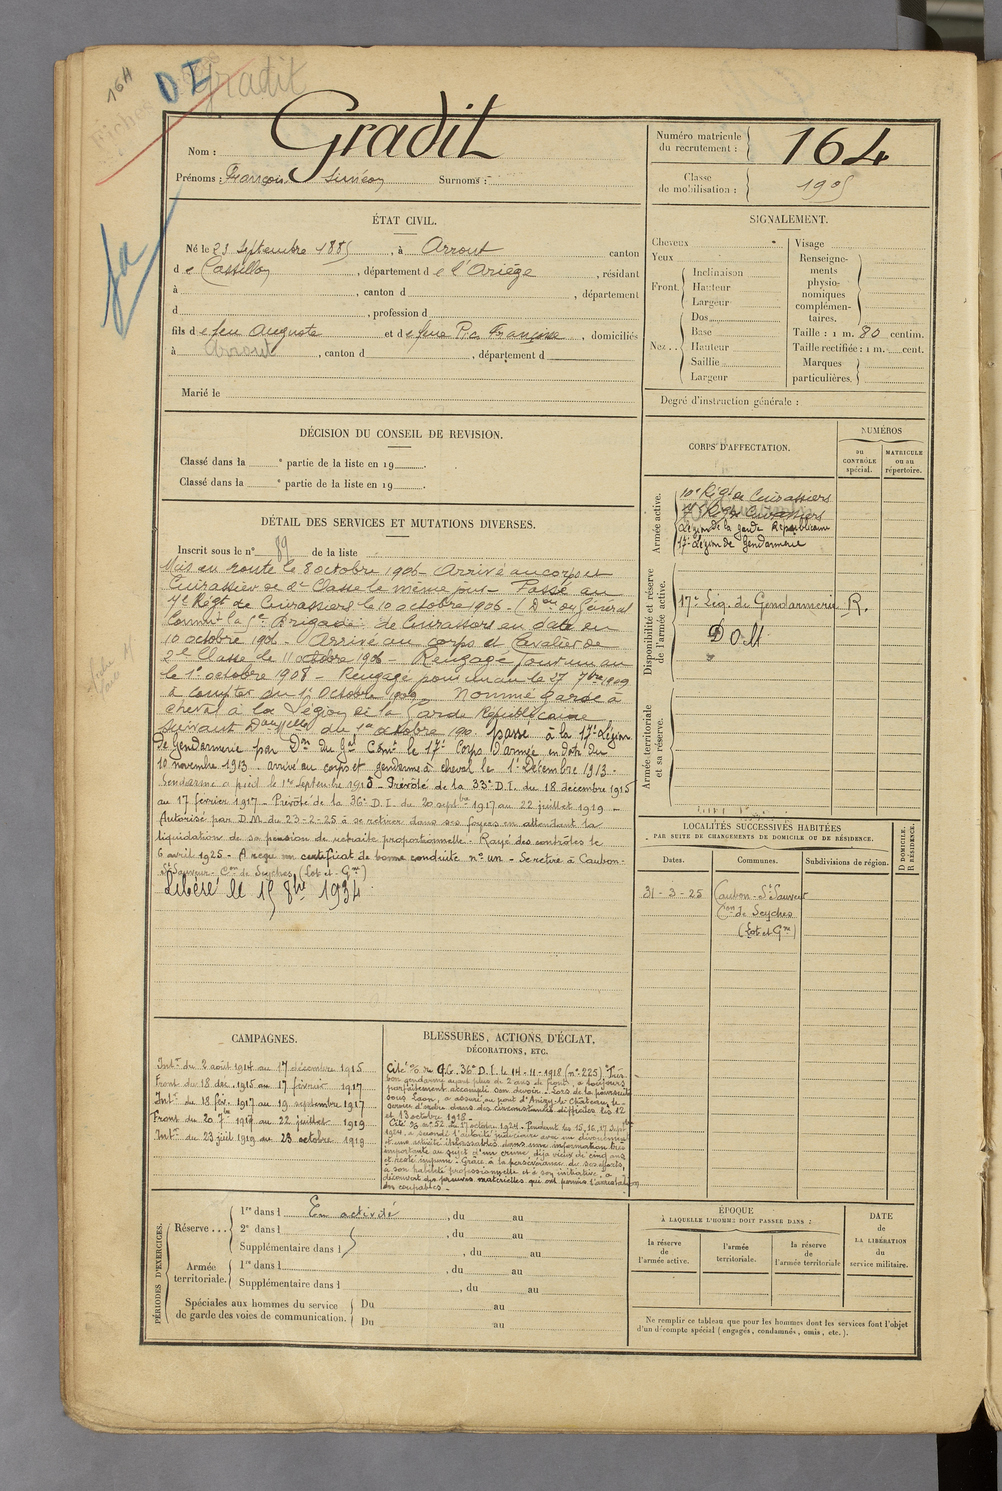 164
DI
Gradit
fa
Nom : Gradit
Prénoms : François, Siméon Surnoms :
Numéro matricule du recrutement : 164
Classe de mobilisation : 1905
ÉTAT CIVIL.
Né le 23 Septembre 1885, à Arrout canton
de Castillon, département de l'Ariège, résidant
à , canton d , département
d , profession d
fils de feu Auguste et de feue Pic Françoise, domiciliés
à Arrout, canton d , département d
Marié le
SIGNALEMENT.
Cheveux
Yeux
Front. Inclinaison
Hauteur
Largeur
Nez Dos
Base
Hauteur
Saillie
Largeur
Visage
Renseigne-
ments
physio-
nomiques
complémen-
taires.
Taille : 1 m. 80 centim.
Taille rectifiée : 1 m. cent.
Marques
particulières.
Degré d'instruction générale :
DÉCISION DU CONSEIL DE REVISION.
Classé dans la e partie de la liste en 19 .
Classé dans la e partie de la liste en 19 .
DÉTAIL DES SERVICES ET MUTATIONS DIVERSES.
Inscrit sous le n° 89 de la liste
Mis en route le 8 octobre 1906 - Arrivé au corps et
Cuirassier de 2e Classe le même jour - Passé au
7e Régt de Cuirassiers le 10 octobre 1906 - (Don du Général
Commt la 5e Brigade de Cuirassiers en date du
10 octobre 1906 - Arrivé au corps et Cavalier de
2e Classe le 11 octobre 1906 - Rengagé pour un an
le 1er octobre 1908 - Rengagé pour un an le 27 7bre 1909
à compter du 1er Octobre 1909 - Nommé garde à
cheval à la Légion de la Garde Républicaine
suivant Don Mlle du 1er octobre 190 . Passé à la 17e Légion
de Gendarmerie par Don du Gal Comt le 17e Corps d'armée en date du
10 novembre 1913 . arrivé au corps et gendarme à cheval le 1er Décembre 1913 .
Gendarme à pied le 1er Septembre 1915 Prévôté de la 33e D.I. du 18 décembre 1915
au 17 février 1917 - Prévôté de la 36e D.I. du 20 septbre 1917 au 22 juillet 1919 -
Autorisé par D.M. du 23-2-25 à se retirer dans ses foyers en attendant la
liquidation de sa pension de retraite proportionnelle - Rayé des contrôles le
6 avril 1925 - A reçu un certificat de bonne conduite n° un - Se retire à Caubon-
St Sauveur - Con de Seyches (Lot-et-Gne)
Libéré le 15 8bre 1934
CORPS D'AFFECTATION.
NUMÉROS
au CONTRÔLE spécial.
MATRICULE ou au répertoire.
Armée active.
10e Régt de Cuirassiers
7e Régt de Cuirassiers
Légion de la Garde Républicaine
17e Légion de Gendarmerie
Disponibilité et réserve de l'armée active.
17e Lég. de Gendarmerie R.
D.O.M
Armée territoriale et sa réserve.
LOCALITÉS SUCCESSIVES HABITÉES
PAR SUITE DE CHANGEMENTS DE DOMICILE OU DE RÉSIDENCE.
Dates. Communes. Subdivisions de région. D DOMICILE. R RÉSIDENCE.
31-3-25 Caubon-St Sauveur
Con de Seyches
(Lot et Gne)
CAMPAGNES.
Intr du 2 août 1914 au 17 décembre 1915
Front du 18 déc. 1915 au 17 février 1917
Intr du 18 fév. 1917 au 19 septembre 1917
Front du 20 7bre 1917 au 22 juillet 1919
Intr du 23 juil 1919 au 23 octobre 1919
BLESSURES, ACTIONS D'ÉCLAT.
DÉCORATIONS, ETC.
Cité % du Q.G. 36e D.I. le 14-11-1918 (n° 225) Très
bon gendarme ayant plus de 2 ans de front, a toujours
parfaitement accompli son devoir. Lors de la poursuite
sous Laon, a assuré au pont d'Anizy-le-Château le
service d'ordre dans des circonstances difficiles les 12
et 13 octobre 1918 -
Cité % n° 52 du 17 octobre 1924 - Pendant les 15, 16, 17 Septbre
1924, a secondé l'autorité judiciaire avec un dévouement
et une activité inlassables dans une information très
importante au sujet d'un crime, déjà vieux de cinq ans
et resté impuni - Grâce à la persévérance de ses efforts,
à son habileté professionnelle et à son initiative, a
découvert des preuves matérielles qui ont permis l'arrestation
des coupables. -
PÉRIODES D'EXERCICES.
Réserve... 1re dans l En activité , du au
2e dans l , du au
Supplémentaire dans l , du au
Armée territoriale. 1re dans l , du au
Supplémentaire dans l , du au
Spéciales aux hommes du service Du au
de garde des voies de communication. Du au
ÉPOQUE
À LAQUELLE L'HOMME DOIT PASSER DANS :
la réserve de l'armée active.
l'armée territoriale.
la réserve de l'armée territoriale
DATE de LA LIBÉRATION du service militaire.
Ne remplir ce tableau que pour les hommes dont les services font l'objet
d'un décompte spécial (engagés, condamnés, omis, etc.).